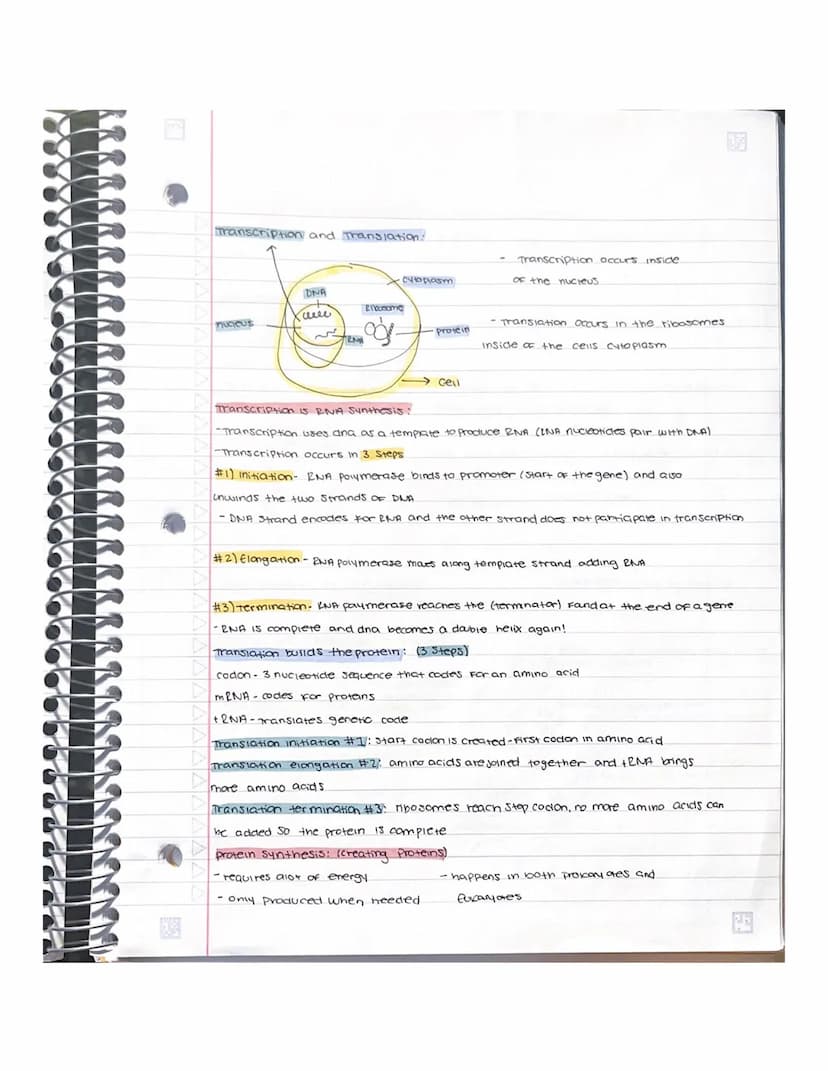 Transcription and Translation:
- Transcription occurs inside
of the nucleus
cytoplasm
DNA
Ribosome
nucleus
RNA
protein
- Translation occurs in the ribosomes
inside of the cells cytoplasm
cell
Transcription is RNA Synthesis:
-Transcription uses dna as a template to produce RNA (RNA nucleotides pair with DNA)
-Transcription occurs in 3 Steps
#1) Initiation- RNA polymerase binds to promoter (start of the gene) and also
unwinds the two strands of DNA
- DNA strand encodes for RNA and the other strand does not participate in transcription
#2) Elongation- RNA polymerase moves along template strand adding RNA
#3) Termination- RNA polymerase reaches the (terminator) found at the end of a gene
-RNA is complete and dna becomes a double helix again!
Translation builds the protein: (3 Steps)
codon- 3 nucleotide sequence that codes for an amino acid
mRNA- codes for proteins
tRNA-translates genetic code
Translation initiation #1: Start codon is created-first codon in amino acid
Translation elongation #2: amino acids are joined together and tRNA brings
more amino acids
Translation termination #3: ribosomes reach stop codon, no more amino acids can
be added so the protein is complete
protein synthesis: (creating proteins)
-requires alot of energy
-happens in both prokaryotes and
- only produced when needed
Eukaryotes